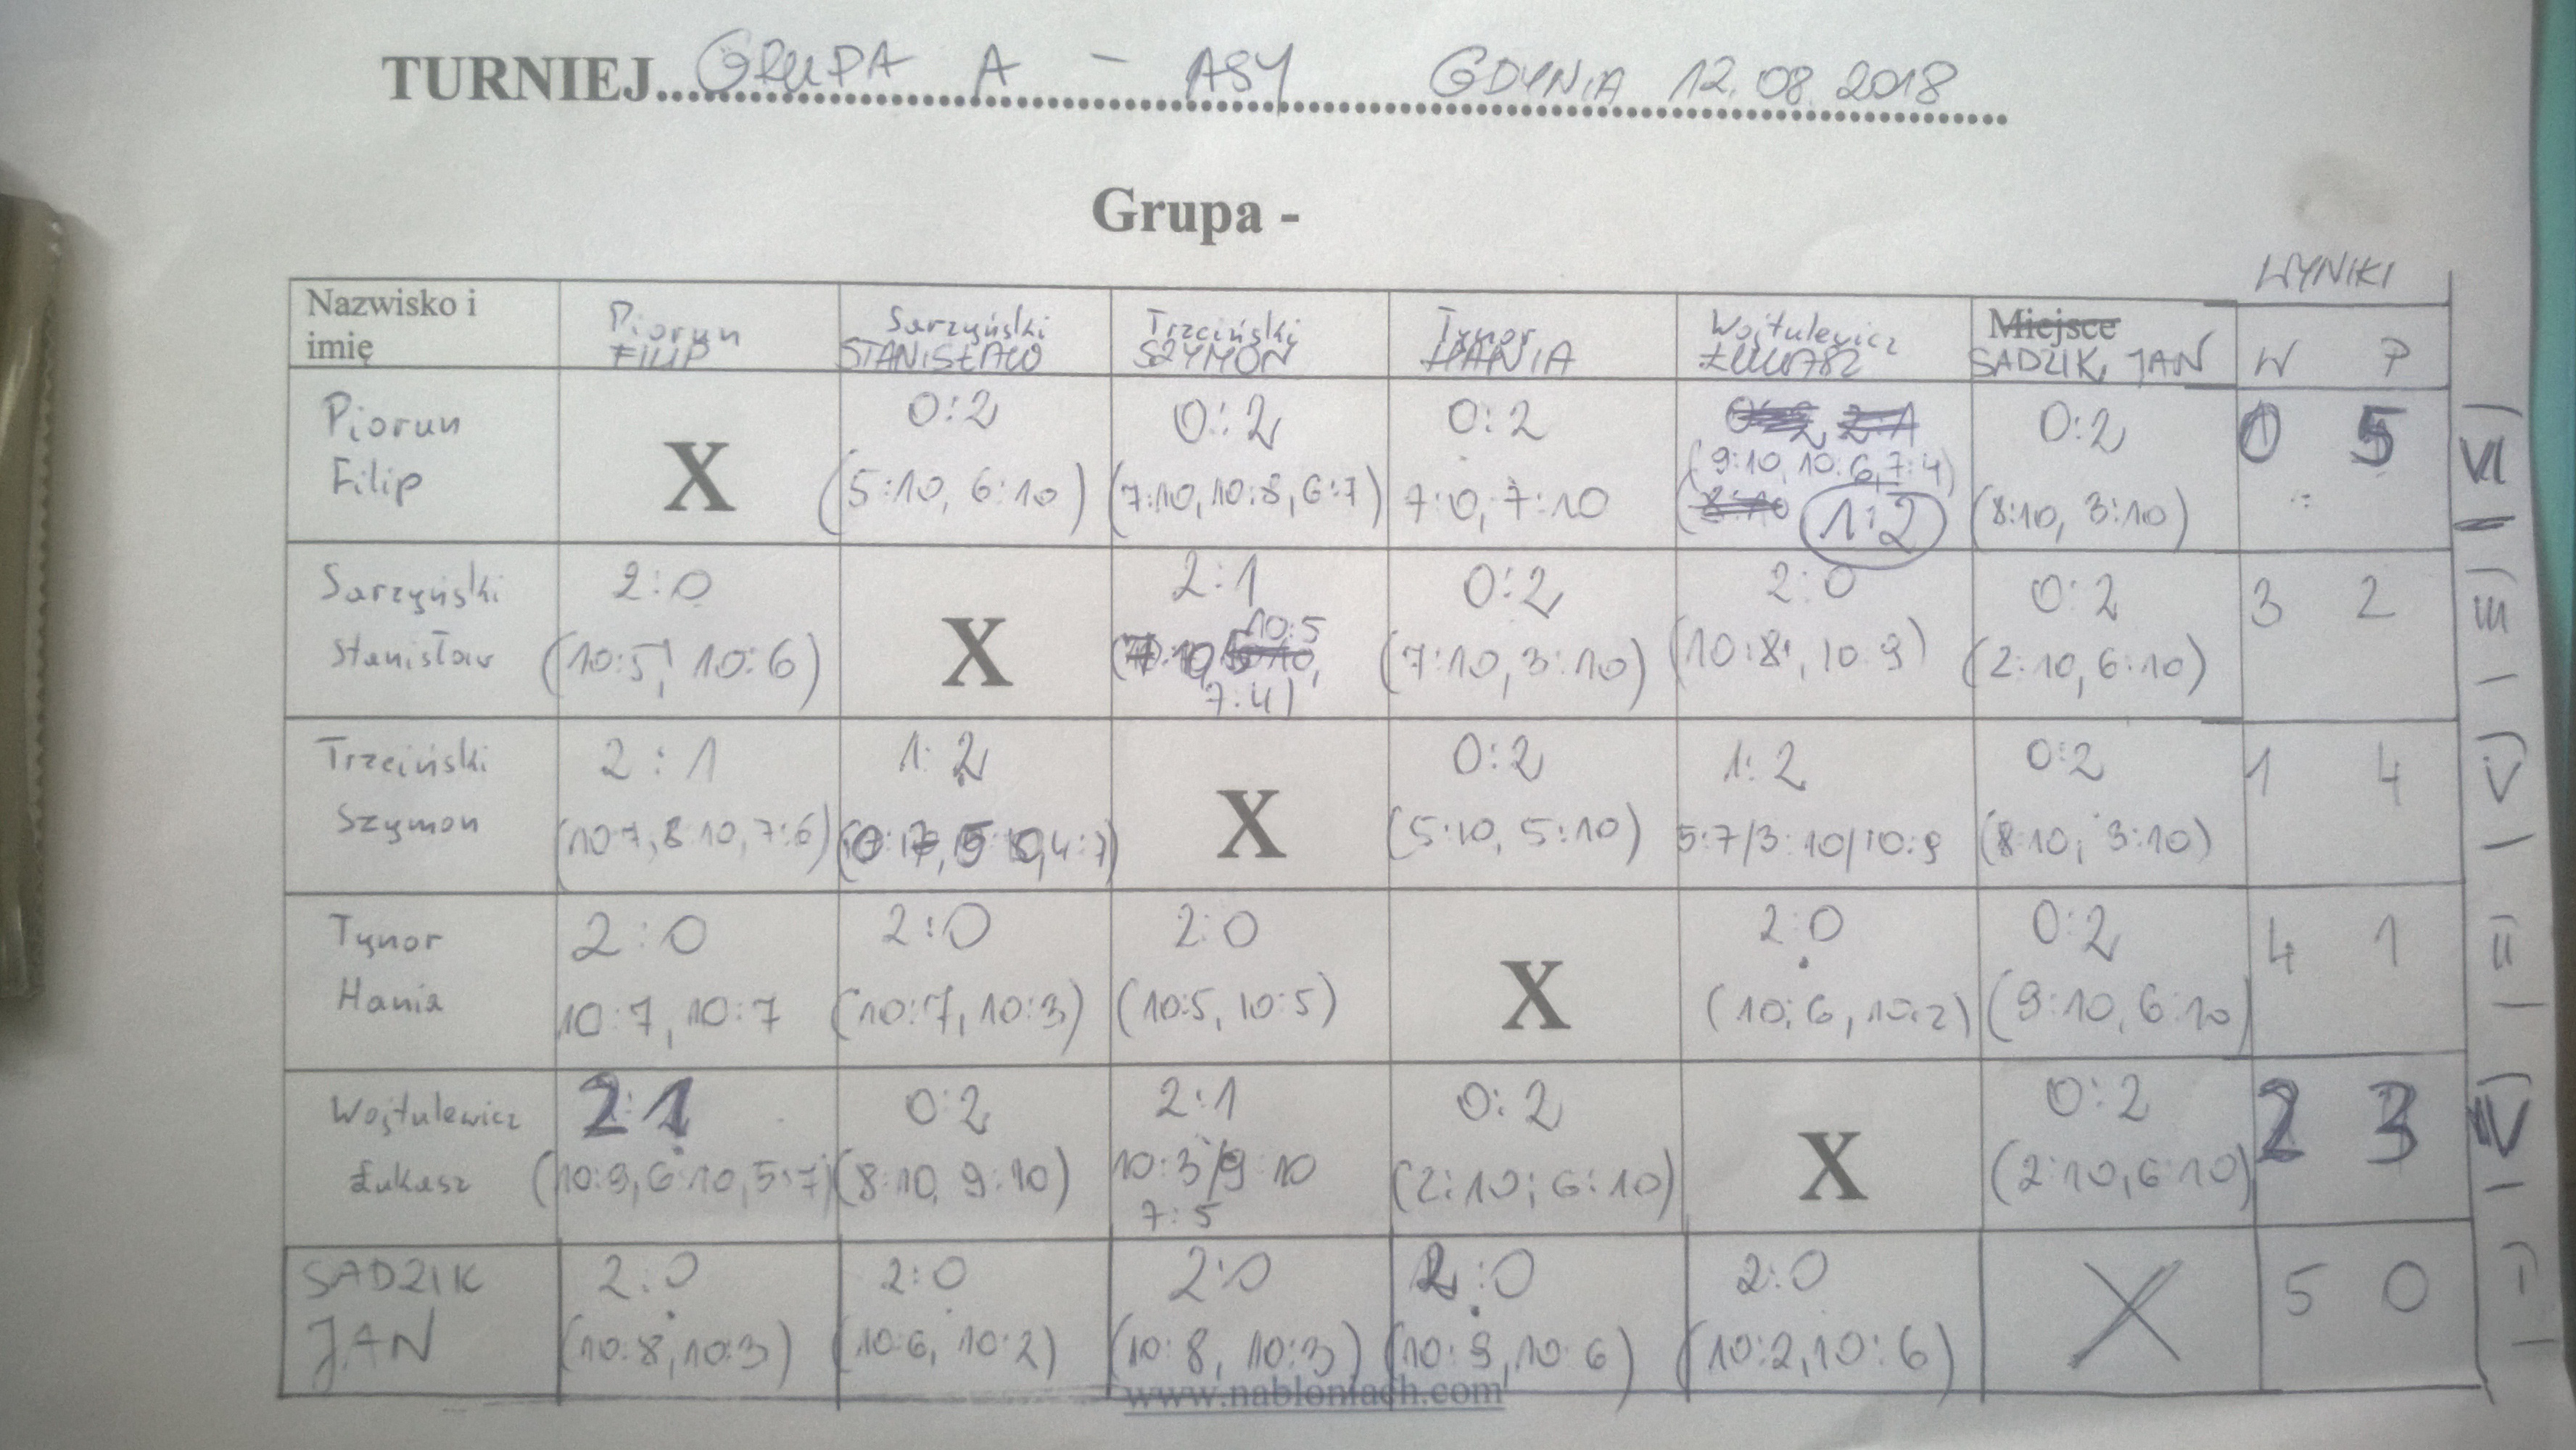 TURNIEJ...GRUPA A - ASY GDYNIA 12.08.2018
Grupa -
WYNIKI
Nazwisko i imię
Piorun FILIP
Sarzyński STANISŁAW
Trzciński SZYMON
Tynor HANIA
Wojtulewicz ŁUKASZ
Miejsce SADZIK JAN
W P
Piorun Filip
X
0:2
(5:10, 6:10)
0:2
(7:10, 10:8, 6:7)
0:2
7:0, 7:10
2:1
(9:10, 10:6, 7:4)
(8:10 1:2
0:2
(8:10, 3:10)
0 5
VI
Sarzyński Stanisław
2:0
(10:5, 10:6)
X
2:1
10:5
7:4)
0:2
(7:10, 3:10)
2:0
(10:8, 10:9)
0:2
(2:10, 6:10)
3 2
III
Trzciński Szymon
2:1
(10:7, 8:10, 7:6)
1:2
4:7)
X
0:2
(5:10, 5:10)
1:2
5:7/3:10/10:9
0:2
(8:10, 3:10)
1 4
V
Tynor Hania
2:0
10:7, 10:7
2:0
(10:7, 10:3)
2:0
(10:5, 10:5)
X
2:0
(10:6, 10:2)
0:2
(9:10, 6:10)
4 1
II
Wojtulewicz Łukasz
2:1
(10:9, 6:10, 5:7)
0:2
(8:10, 9:10)
2:1
10:3/9:10
7:5
0:2
(2:10; 6:10)
X
0:2
(2:10, 6:10)
2 3
IV
SADZIK JAN
2:0
(10:8, 10:3)
2:0
(10:6, 10:2)
2:0
(10:8, 10:3)
2:0
(10:9, 10:6)
2:0
(10:2, 10:6)
X
5 0
I
www.nabloniach.com